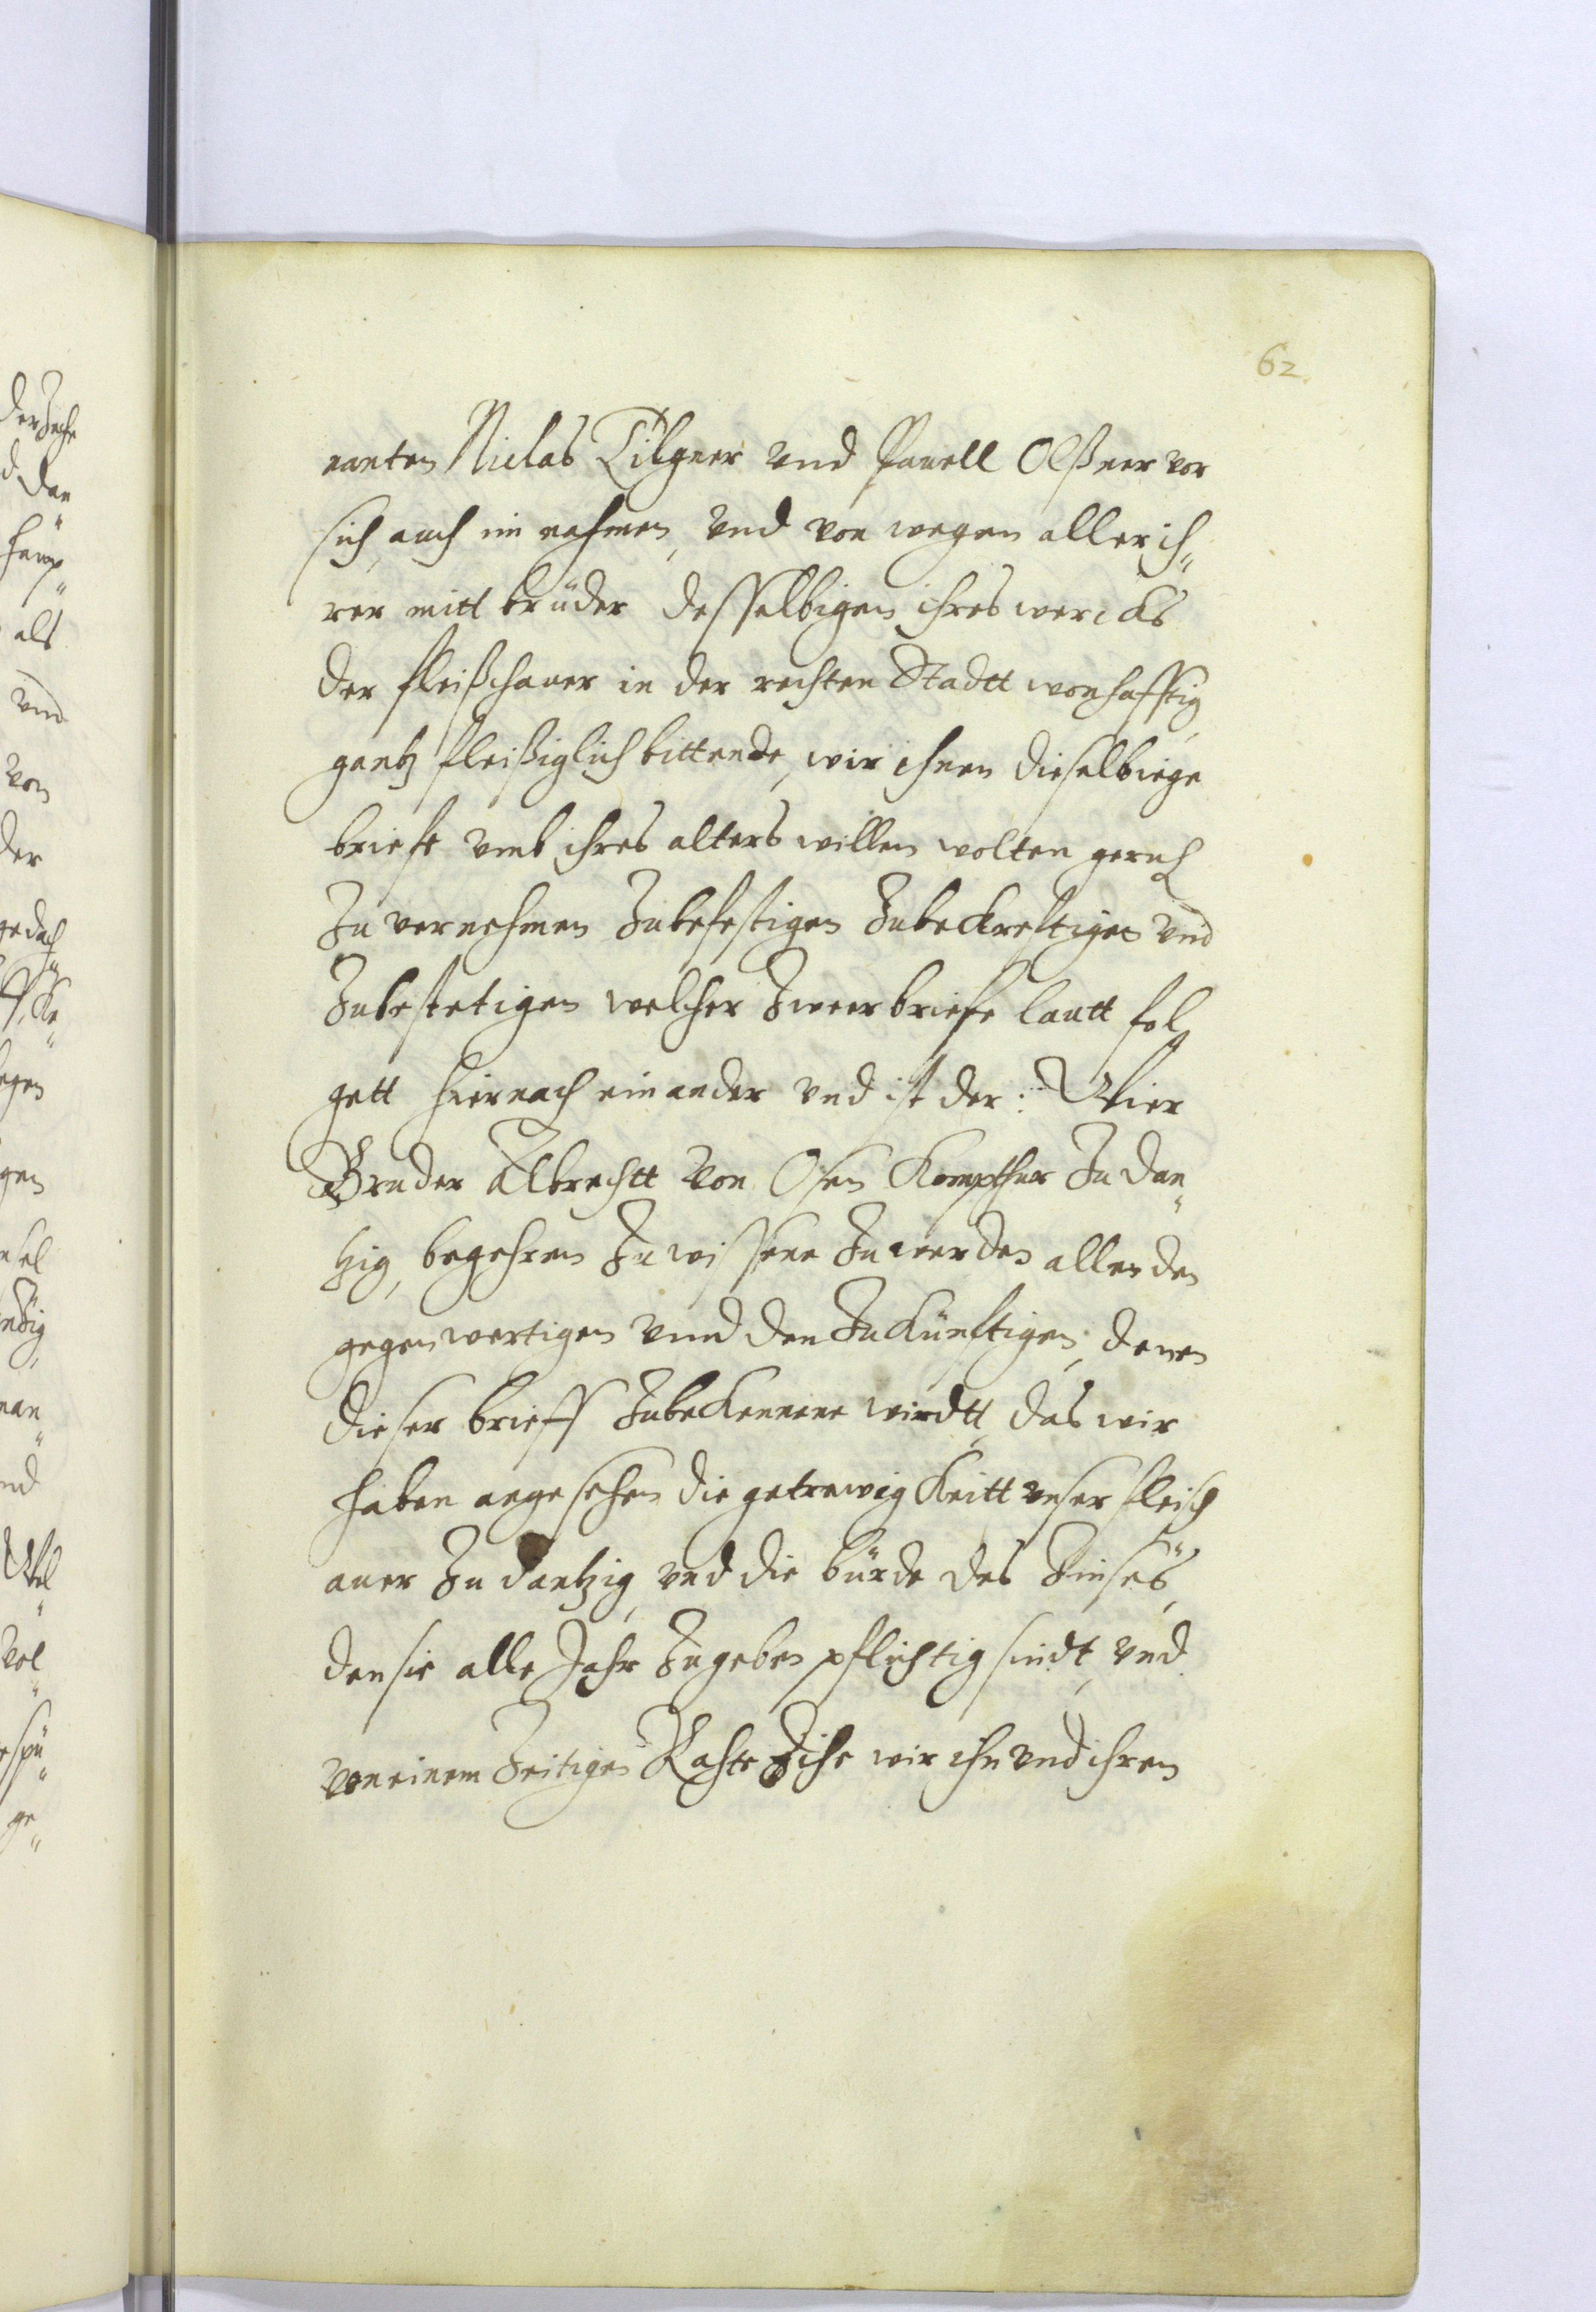 62
nanten Niclas Tilgner vnd Pauell Olßner vor
sich, auch im nahmen, vnd von wegen aller ih„
rer mitt brüder desselbigen ihres wercks
der fleischauer in der rechten Stadtt wonhafftig,
gantz fleißiglich bittende, wir ihnen dieselbiege
briefe vmb ihres alters willen wolten geruh
Zu vernehmen Zubefestigen Zubekreftigen vnd
Zubestetigen welcher Zweer briefe lautt fol
gett hiernach einander vnd ist der: Wier
Bruder Albrechtt von Osen Kompthur Zu Dan„
tzig, begehren Zu wissene Zuwerden allen den
gegenwertigen vnd den Zukünftigen, denen
dieser brieff Zubekennene wirdtt, das wir
haben angesehen die getrewigkeitt vnser fleisch
auer Zu Dantzig, vnd die bürde des Zinses,
den sie alle Jahr Zugeben pflichtig sindt, vnd
von einem Zeitigen Rahte wir ihn vnd ihren
der
d dan„
als
vnd
von
der
gedach„
gen
ge„